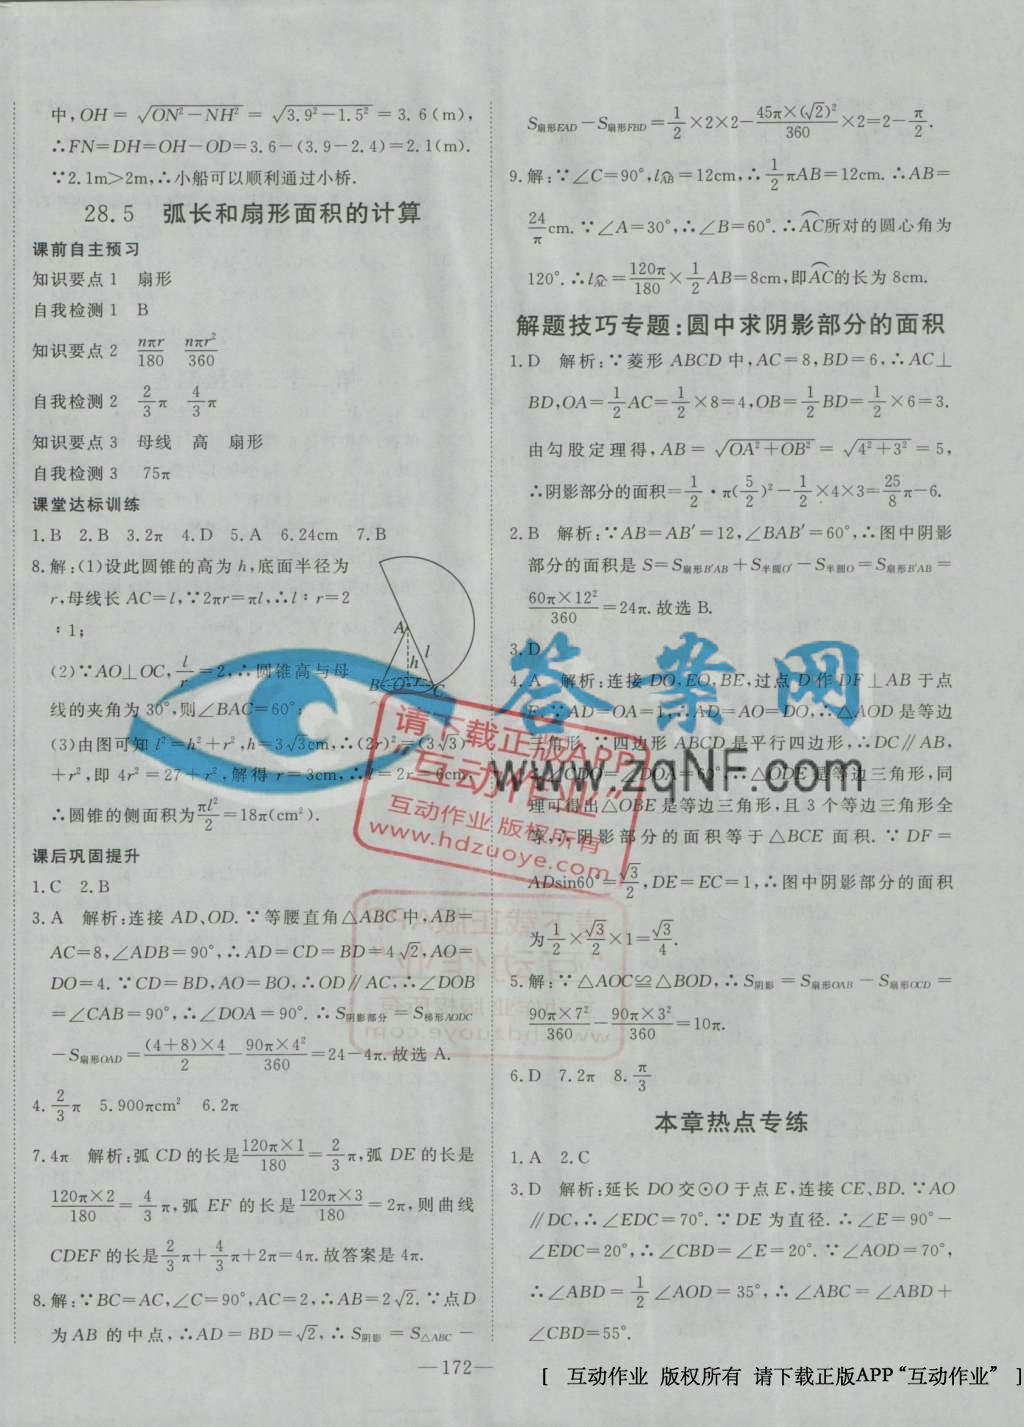 中,OH=√(ON²-NH²)=√(3.9²-1.5²)=3.6(m),
∴FN=DH=OH-OD=3.6-(3.9-2.4)=2.1(m).
∵2.1m>2m,∴小船可以顺利通过小桥.
28.5 弧长和扇形面积的计算
课前自主预习
知识要点1 扇形
自我检测1 B
知识要点2 nπr/180 nπr²/360
自我检测2 2/3π 4/3π
知识要点3 母线 高 扇形
自我检测3 75π
课堂达标训练
1.B 2.B 3.2π 4.D 5.A 6.24cm 7.B
8.解:(1)设此圆锥的高为h,底面半径为
r,母线长AC=l,∵2πr=πl,∴l∶r=2
∶1;
(2)∵AO⊥OC,l/r=2,∴圆锥高与母
线的夹角为30°,则∠BAC=60°;
(3)由图可知l²=h²+r²,h=3√3cm,∴(2r)²=(3√3)²
+r²,即4r²=27+r²,解得r=3cm,∴l=2r=6cm,
∴圆锥的侧面积为πl²/2=18π(cm²).
A
l
h
r
B
O
C
课后巩固提升
1.C 2.B
3.A 解析:连接AD、OD.∵等腰直角△ABC中,AB=
AC=8,∠ADB=90°,∴AD=CD=BD=4√2,AO=
DO=4.∵CD=BD,AO=BO,∴OD∥AC,∴∠DOB
=∠CAB=90°,∴∠DOA=90°.∴S阴影部分=S梯形AODC
-S扇形OAD=(4+8)×4/2-90π×4²/360=24-4π.故选A.
4.2/3π 5.900πcm² 6.2π
7.4π 解析:弧CD的长是120π×1/180=2/3π,弧DE的长是
120π×2/180=4/3π,弧EF的长是120π×3/180=2π,则曲线
CDEF的长是2/3π+4/3π+2π=4π.故答案是4π.
8.解:∵BC=AC,∠C=90°,AC=2,∴AB=2√2.∵点D
为AB的中点,∴AD=BD=√2,∴S阴影=S△ABC-
S扇形EAD-S扇形FBD=1/2×2×2-45π×(√2)²/360×2=2-π/2.
9.解:∵∠C=90°,l⌒AB=12cm,∴1/2πAB=12cm.∴AB=
24/πcm.∵∠A=30°,∴∠B=60°.∴⌒AC所对的圆心角为
120°.∴l⌒AC=120π/180×1/2AB=8cm,即⌒AC的长为8cm.
解题技巧专题:圆中求阴影部分的面积
1.D 解析:∵菱形ABCD中,AC=8,BD=6,∴AC⊥
BD,OA=1/2AC=1/2×8=4,OB=1/2BD=1/2×6=3.
由勾股定理得,AB=√(OA²+OB²)=√(4²+3²)=5,
∴阴影部分的面积=1/2·π(5/2)²-1/2×4×3=25/8π-6.
2.B 解析:∵AB=AB′=12,∠BAB′=60°,∴图中阴影
部分的面积是S=S扇形B′AB+S半圆O′-S半圆O=S扇形B′AB=
60π×12²/360=24π.故选B.
3.D
4.A 解析:连接DO,EO,BE,过点D作DF⊥AB于点
F.∵AD=OA=1,∴AD=AO=DO,∴△AOD是等边
三角形.∵四边形ABCD是平行四边形,∴DC∥AB,
∴∠CDO=∠DOA=60°,∴△ODE是等边三角形,同
理可得出△OBE是等边三角形,且3个等边三角形全
等,∴阴影部分的面积等于△BCE面积.∵DF=
ADsin60°=√3/2,DE=EC=1,∴图中阴影部分的面积
为1/2×√3/2×1=√3/4.
5.解:∵△AOC≌△BOD,∴S阴影=S扇形OAB-S扇形OCD=
90π×7²/360-90π×3²/360=10π.
6.D 7.2π 8.π/3
本章热点专练
1.A 2.C
3.D 解析:延长DO交⊙O于点E,连接CE、BD.∵AO
∥DC,∴∠EDC=70°.∵DE为直径.∴∠E=90°-
∠EDC=20°,∴∠CBD=∠E=20°.∵∠AOD=70°,
∴∠ABD=1/2∠AOD=35°,∴∠ABC=∠ABD+
∠CBD=55°.
答案网
www.zqNF.com
请下载正版APP
“互动作业”
互动作业 版权所有
www.hdzuoye.com
—172—
[ 互动作业 版权所有 请下载正版APP“互动作业” ]